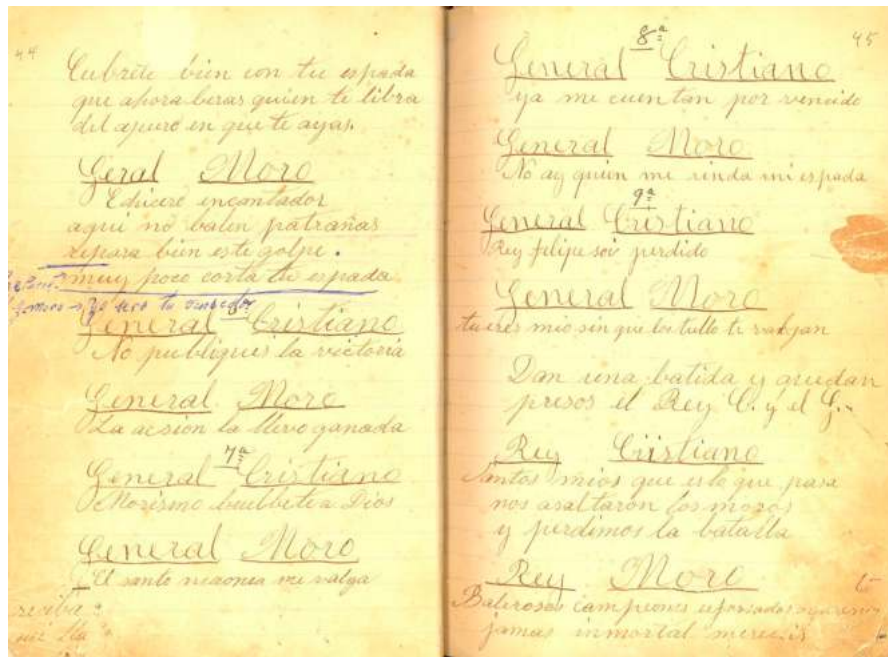 44
Cubrete bien con tu espada
que ahora beras quien te libra
del apuro en que te ayas.
Geral Moro
encantador
aqui no balen patrañas
repara bien este golpe.
muy poco corta tu espada
yo sere tu vencedor
8ª
General Cristiano
No publiques la victoria
General Moro
La acsion la llevo ganada
7ª
General Cristiano
Morismo buelbete a Dios
General Moro
El santo me valga
reciba
mi
45
8ª
General Cristiano
ya me cuentan por vencido
General Moro
No ay quien me rinda mi espada
9ª
General Cristiano
Rey filipe soi perdido
General Moro
tu eres mio sin que los tullo te valgan
Dan una batida y quedan
presos el Rey C. y el G.
Rey Cristiano
Santos mios que es lo que pasa
nos asaltaron los moros
y perdimos la batalla
Rey Moro
Balerosos campeones
jamas inmortal